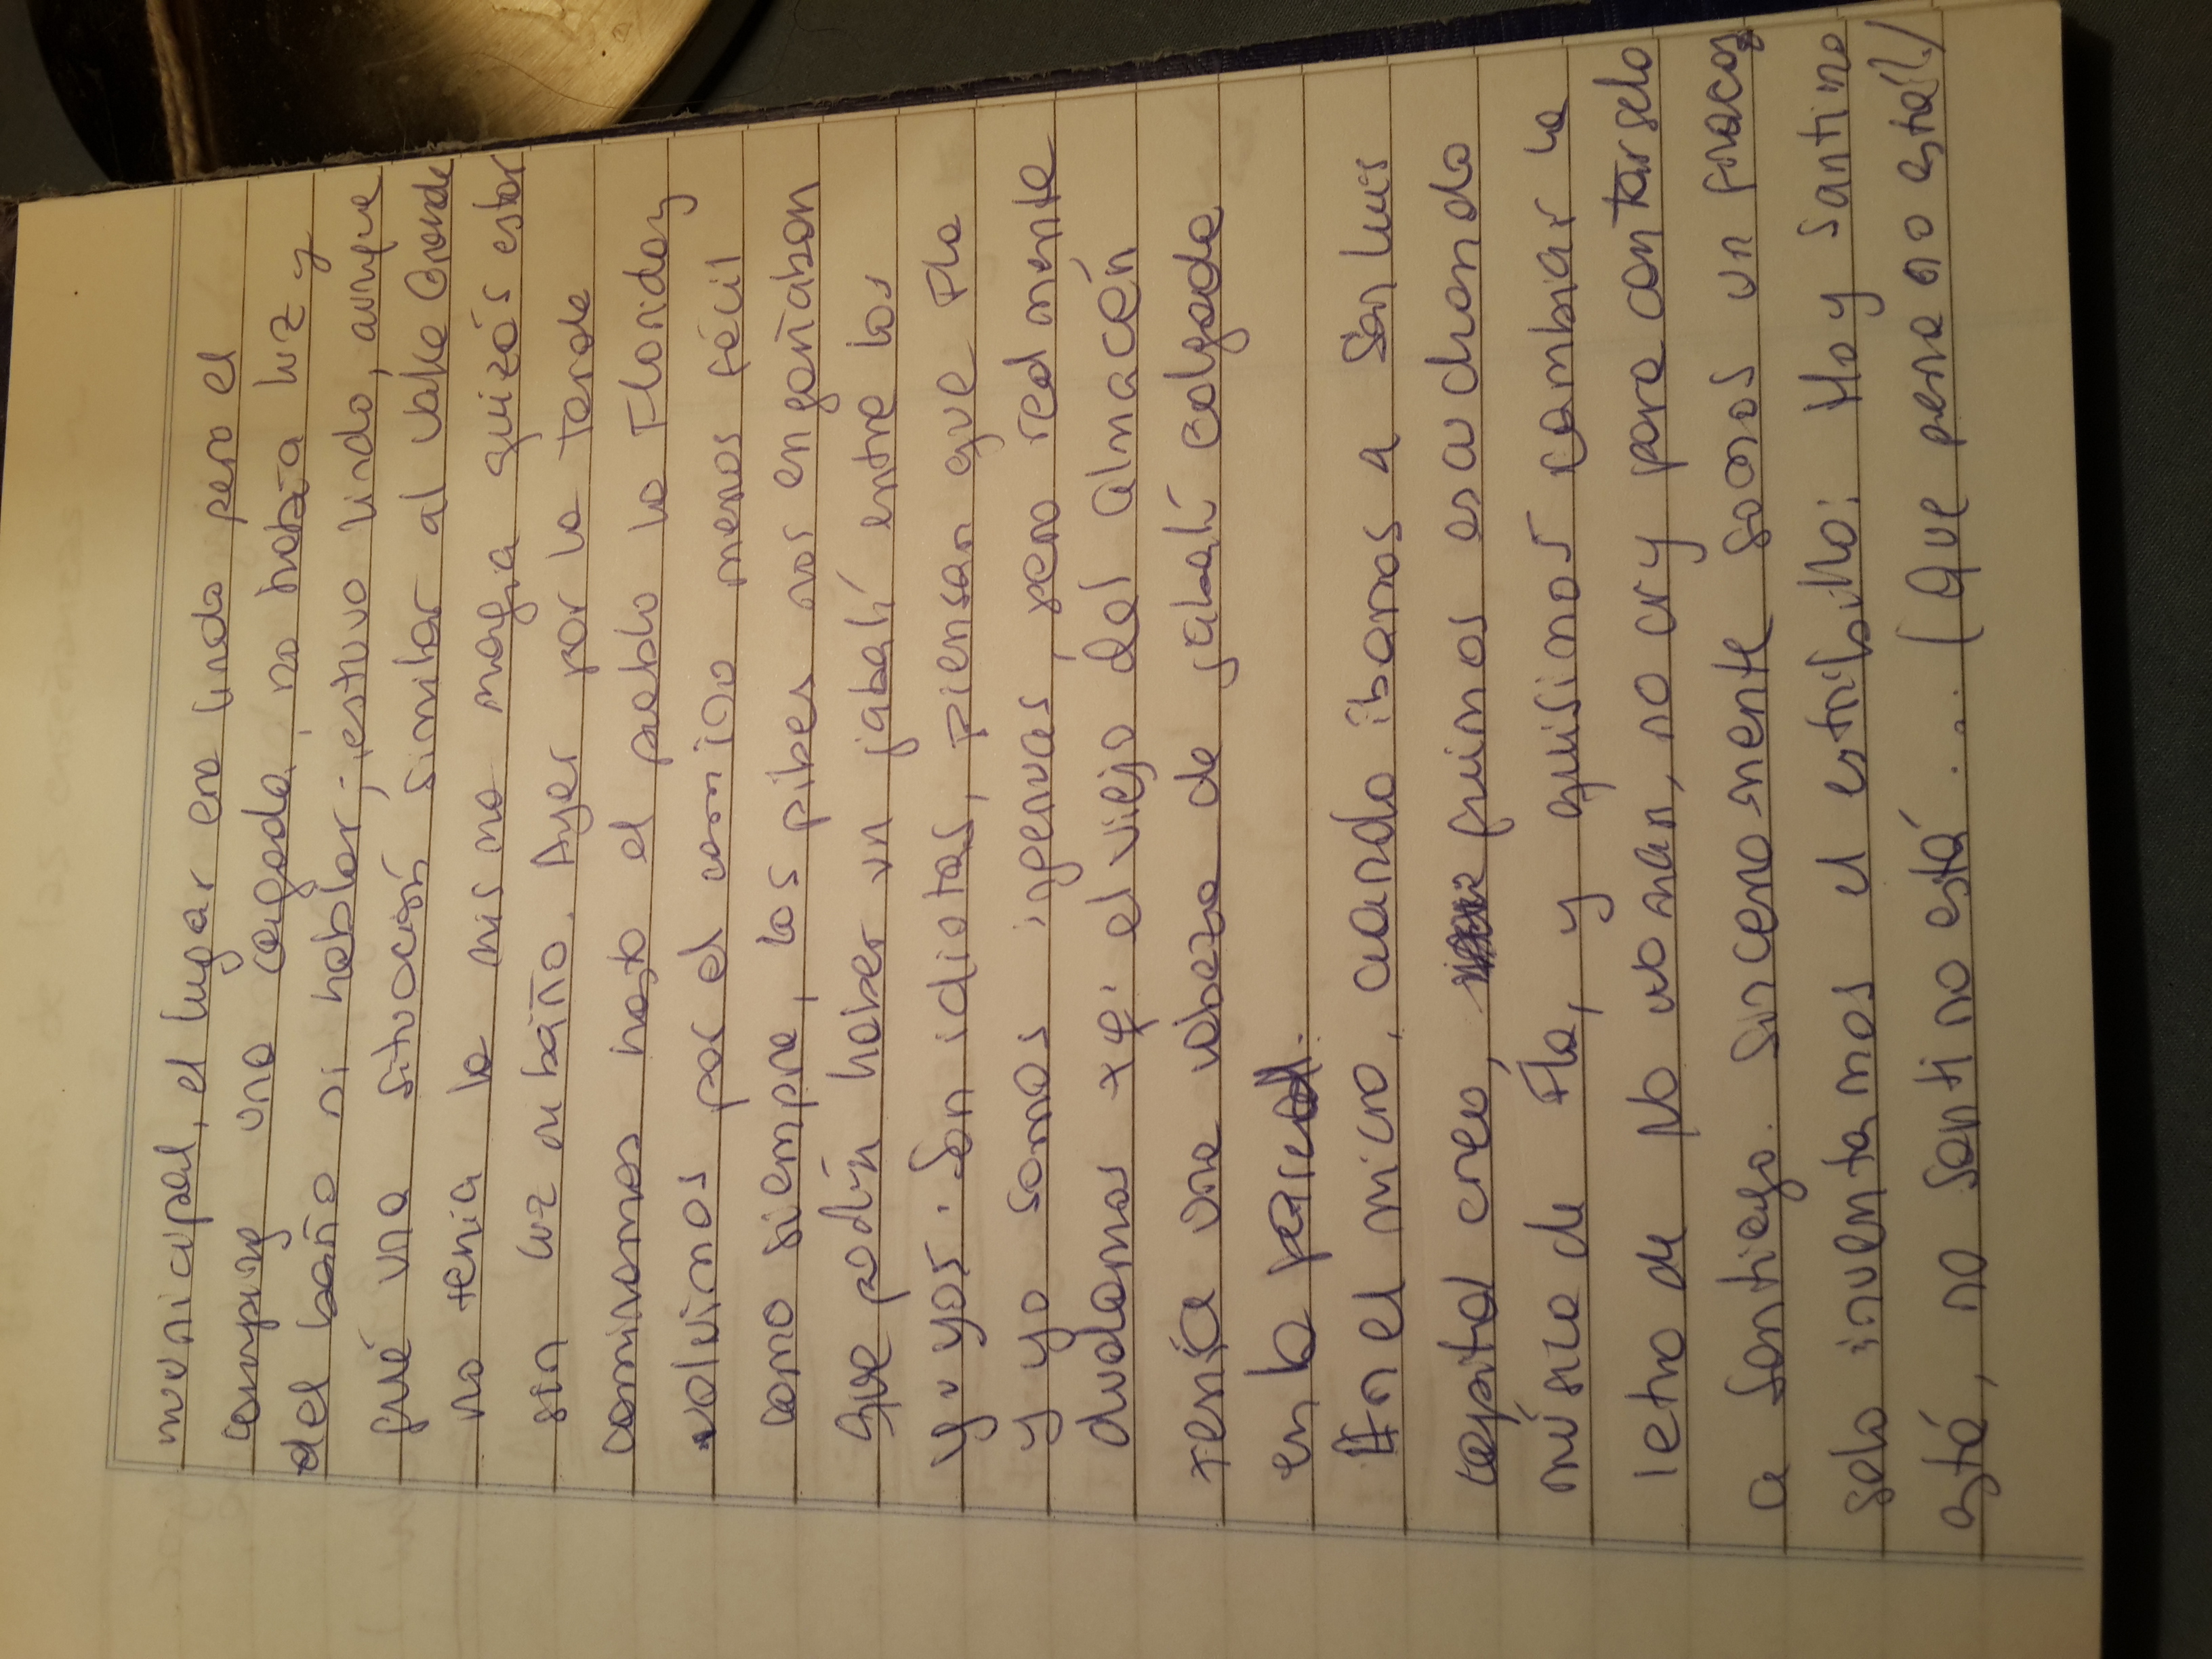 municipal, el lugar era lindo pero el
camping una cagada, no había luz y
del baño ni hablar; estuvo lindo, aunque
fué una situación similar al Valle Grande
no tenía la misma magia quizás estar
sin luz ni baño. Ayer por la tarde
caminamos hasta el pueblo la Florida y
volvimos por el camino menos fácil
como siempre, los pibes nos engañaban
que podía haber un jabalí entre los
yuyos. Son idiotas, piensan que Fla
y yo somos ingenuas, pero realmente
dudamos xq' el viejo del almacén
tenía una cabeza de jabalí colgada
en la pared.
En el micro, cuando íbamos a San Luis
capital creo, fuimos escuchando
música de Fla, y quisimos cambiar la
letra de No woman, no cry para contárselo
a Santiago. Sinceramente somos un fracaso
solo inventamos el estribillo: Hoy Santino
está, no Santino está... (Que pena no está!)